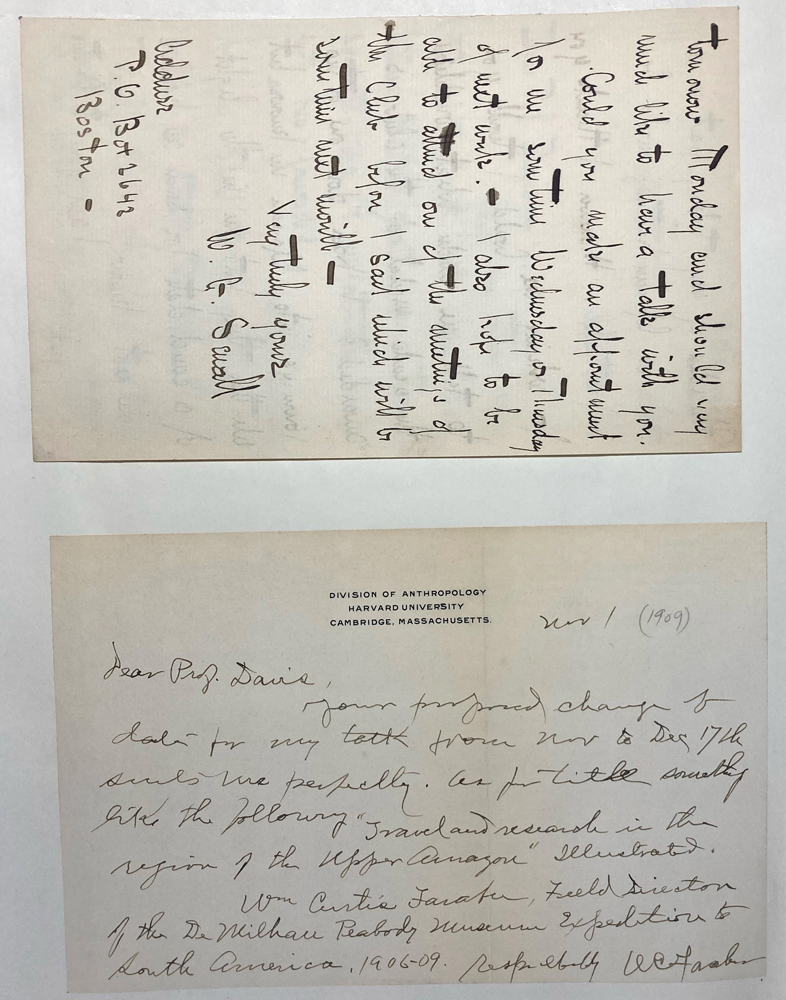 tomorrow Monday and should very
much like to have a talk with you.
Could you make an appointment
for me sometime Wednesday or Thursday
of next week. - I also hope to be
able to attend one of the meetings of
the Club before I sail which will be
sometime next month -
Very truly yours
W. G. Small
Address
P.O. Box 2642
Boston -
DIVISION OF ANTHROPOLOGY
HARVARD UNIVERSITY
CAMBRIDGE, MASSACHUSETTS.
Nov 1 (1909)
Dear Prof. Davis,
Your proposed change of
date for my talk from Nov to Dec 17th
suits me perfectly. As for title something
like the following "Travel and research in the
region of the Upper Amazon" Illustrated.
Wm Curtis Farabee, Field Director
of the De Milhau Peabody Museum Expedition to
South America, 1906-09. Respectfully WC Farabee